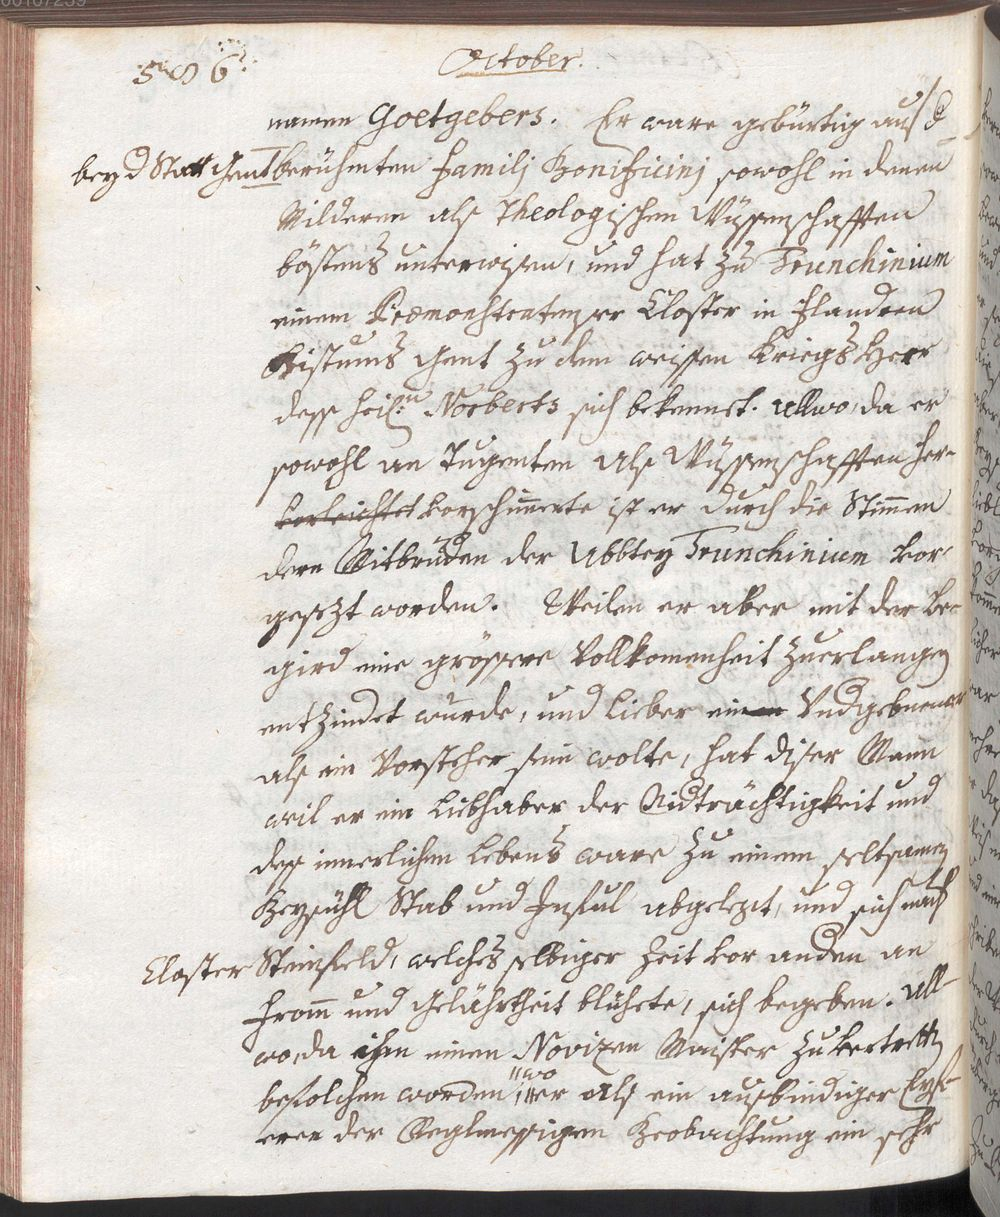 00107259
586
October.
namen Goetgebers. Er ware gebürtig auß d
bey d Statt Gent berühmten Familj Bonificinj sowohl in denen
Milderen alß Theologischen Wüssenschafften
böstens unterwisen, und hat zu Trunchinium
einem Præmonstratenser Closter in Flandren
Bistums Gent zu dem weissen Kriegs Heer
dess heil:n Norberts sich bekennet. Allwo, da er
sowohl an Tugenten alß Wüssenschafften her-
vorleichtet vorschimerte ist er durch die Stimmen
dern Mitbrüden der Abbtey Trunchinium vor-
gesezt worden. Weilen er aber mit der Be-
gird eine grössere Vollkomenheit zuerlangen
entzindet wurde, und lieber ein Undgebener
alß ein Vorsteher sein wolte, hat diser Mann
weil er ein Liebhaber der Nidträchtigkeit und
deß innerlichen Lebens ware zu einem seltsamen
Beyspühl Stab und Inful abgelegt, und sich nach
Closter Steinfeld, welches selbiger Zeit vor anden an
Fromm und Gelährtheit blühete, sich begeben. All-
wo, da ihm einen Novizen Maister zu vertretten
befolchen worden, wo er alß ein außbindiger Eyf-
erer der Reglmessigen Beobachtung ein sehr